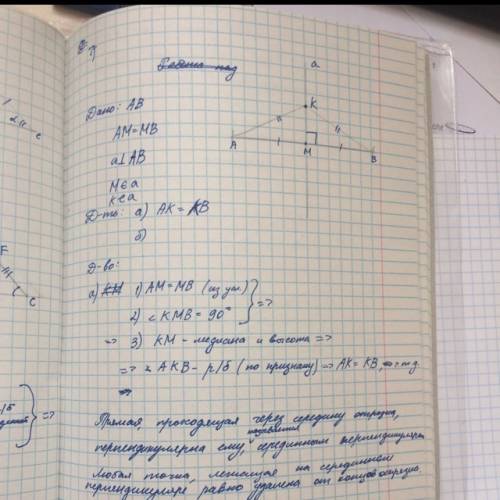 Дано: AB
AM=MB
a⊥AB
M∈a
K∈a
Д-ть: а) AK = KB
б)
Д-во:
а) 1) AM=MB (из усл.)
2) ∠KMB = 90°
} =>
=> 3) KM - медиана и высота =>
=> AKB - р/б (по признаку) => AK = KB,
Прямая, проходящая через середину отрезка,
перпендикулярна ему, называется серединным перпендикуляром
Любая точка, лежащая на серединном
перпендикуляре равно удалена от концов отрезка.
a
K
A
M
B
c
F
c
/б
} =>